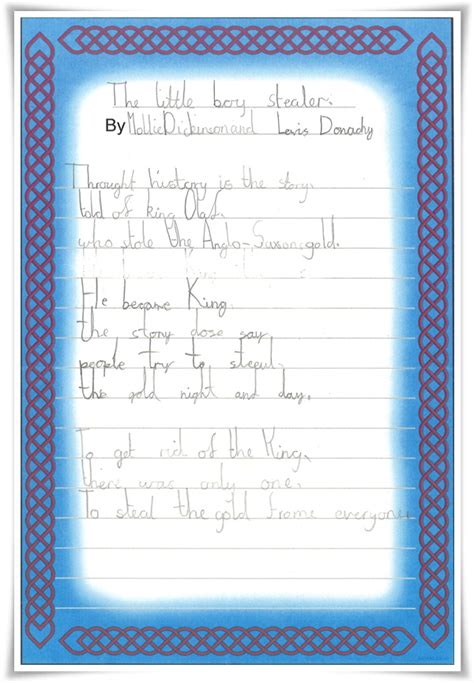 The little boy stealer.
By Mollie Dickinson and Lewis Donachy
Throught history is the story,
told of King Olaf.
who stole the Anglo-Saxons gold.
He became King.
the story dose say
people try to steeul.
the gold night and day.
To get rid of the King.
there was only one.
To steal the gold frome everyone.